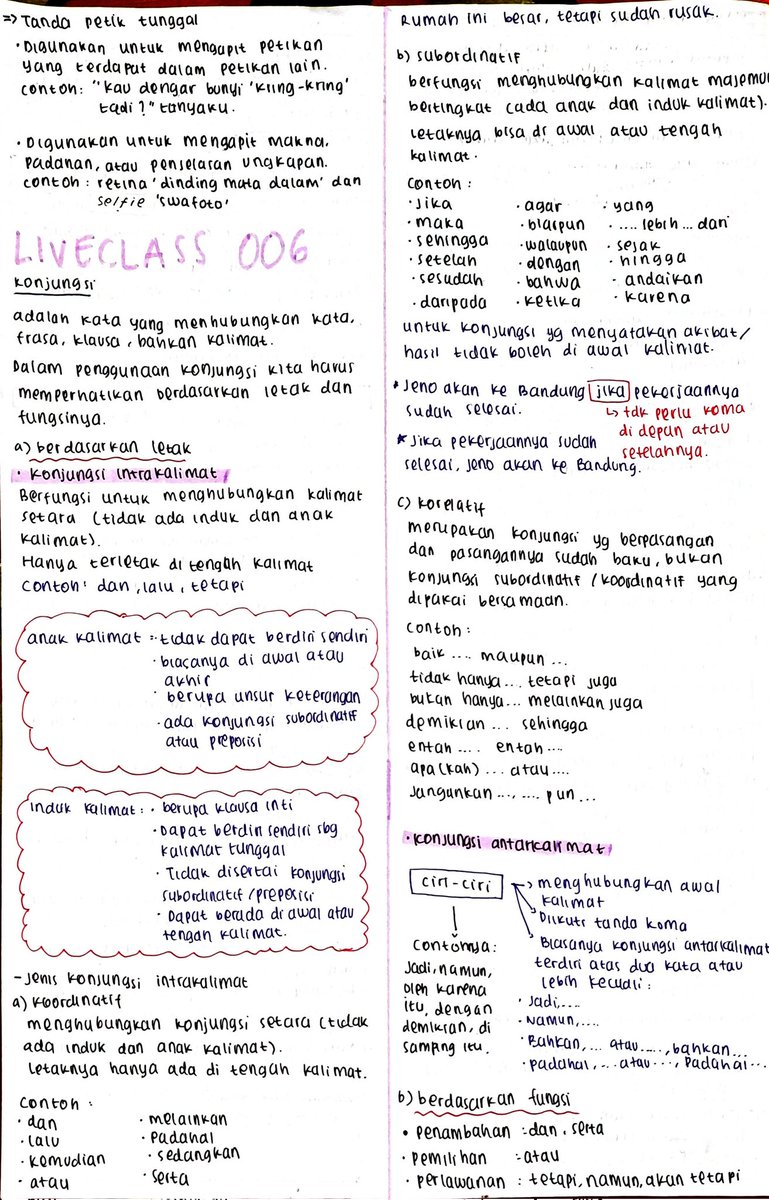 => Tanda petik tunggal
• Digunakan untuk mengapit petikan
yang terdapat dalam petikan lain.
contoh: "Kau dengar bunyi 'kring-kring'
tadi?" tanyaku.
• Digunakan untuk mengapit makna,
padanan, atau penjelaran ungkapan.
contoh: retina 'dinding mata dalam' dan
selfie 'swafoto'
LIVECLASS 006
Konjungsi
adalah kata yang menhubungkan kata,
frasa, klausa, bahkan kalimat.
Dalam penggunaan konjungsi kita harus
memperhatikan berdasarkan letak dan
fungsinya.
a) berdasarkan letak
• Konjungsi intrakalimat
Berfungsi untuk menghubungkan kalimat
setara (tidak ada induk dan anak
kalimat).
Hanya terletak di tengah kalimat
contoh: dan, lalu, tetapi
anak kalimat = • tidak dapat berdiri sendiri
• biaçanya di awal atau
akhir
• berupa unsur keterangan
• ada konjungsi subordinatif
atau preposisi
induk kalimat: • berupa klausa inti
• Dapat berdiri sendiri sbg
kalimat tunggal
• Tidak disertai konjungsi
subordinatif/preposisi
• Dapat berada di awal atau
tengah kalimat.
- Jenis konjungsi intrakalimat
a) koordinatif
menghubungkan konjungsi setara (tidak
ada induk dan anak kalimat).
letaknya hanya ada di tengah kalimat.
contoh:
• dan • melainkan
• lalu • padahal
• kemudian • sedangkan
• atau • serta
Rumah ini besar, tetapi sudah rusak.
b) subordinatif
berfungsi menghubungkan kalimat majemu
bertingkat (ada anak dan induk kalimat).
letaknya bisa di awal atau tengah
kalimat.
contoh:
• jika • agar • yang
• maka • biarpun • .... lebih ... dari
• sehingga • walaupun • sejak
• setelah • dengan • hingga
• sesudah • bahwa • andaikan
• daripada • ketika • karena
untuk konjungsi yg menyatakan akibat/
hasil tidak boleh di awal kalimat.
* Jeno akan ke Bandung jika pekerjaannya
sudah selesai.
↳ tdk perlu koma
di depan atau
setelahnya.
* Jika pekerjaannya sudah
selesai, Jeno akan ke Bandung.
c) korelatif
merupakan konjungsi yg berpasangan
dan pasangannya sudah baku, bukan
konjungsi subordinatif/koordinatif yang
dipakai bersamaan.
contoh:
baik .... maupun ...
tidak hanya ... tetapi juga
bukan hanya ... melainkan juga
demikian ... sehingga
entah .... entah ....
apa(kah) ... atau ....
Jangankan ..., .... pun ...
• Konjungsi antarkalimat
ciri-ciri
→ menghubungkan awal
kalimat
→ Diikuti tanda koma
→ Biasanya konjungsi antarkalimat
terdiri atas dua kata atau
lebih kecuali:
• Jadi, ....
• Namun, ....
• Bahkan, ... atau ...., bahkan ...
• padahal, .... atau ..., padahal ...
contohnya:
Jadi, namun,
oleh karena
itu, dengan
demikian, di
samping itu.
b) berdasarkan fungsi
• penambahan : dan, serta
• pemilihan : atau
• perlawanan : tetapi, namun, akan tetapi